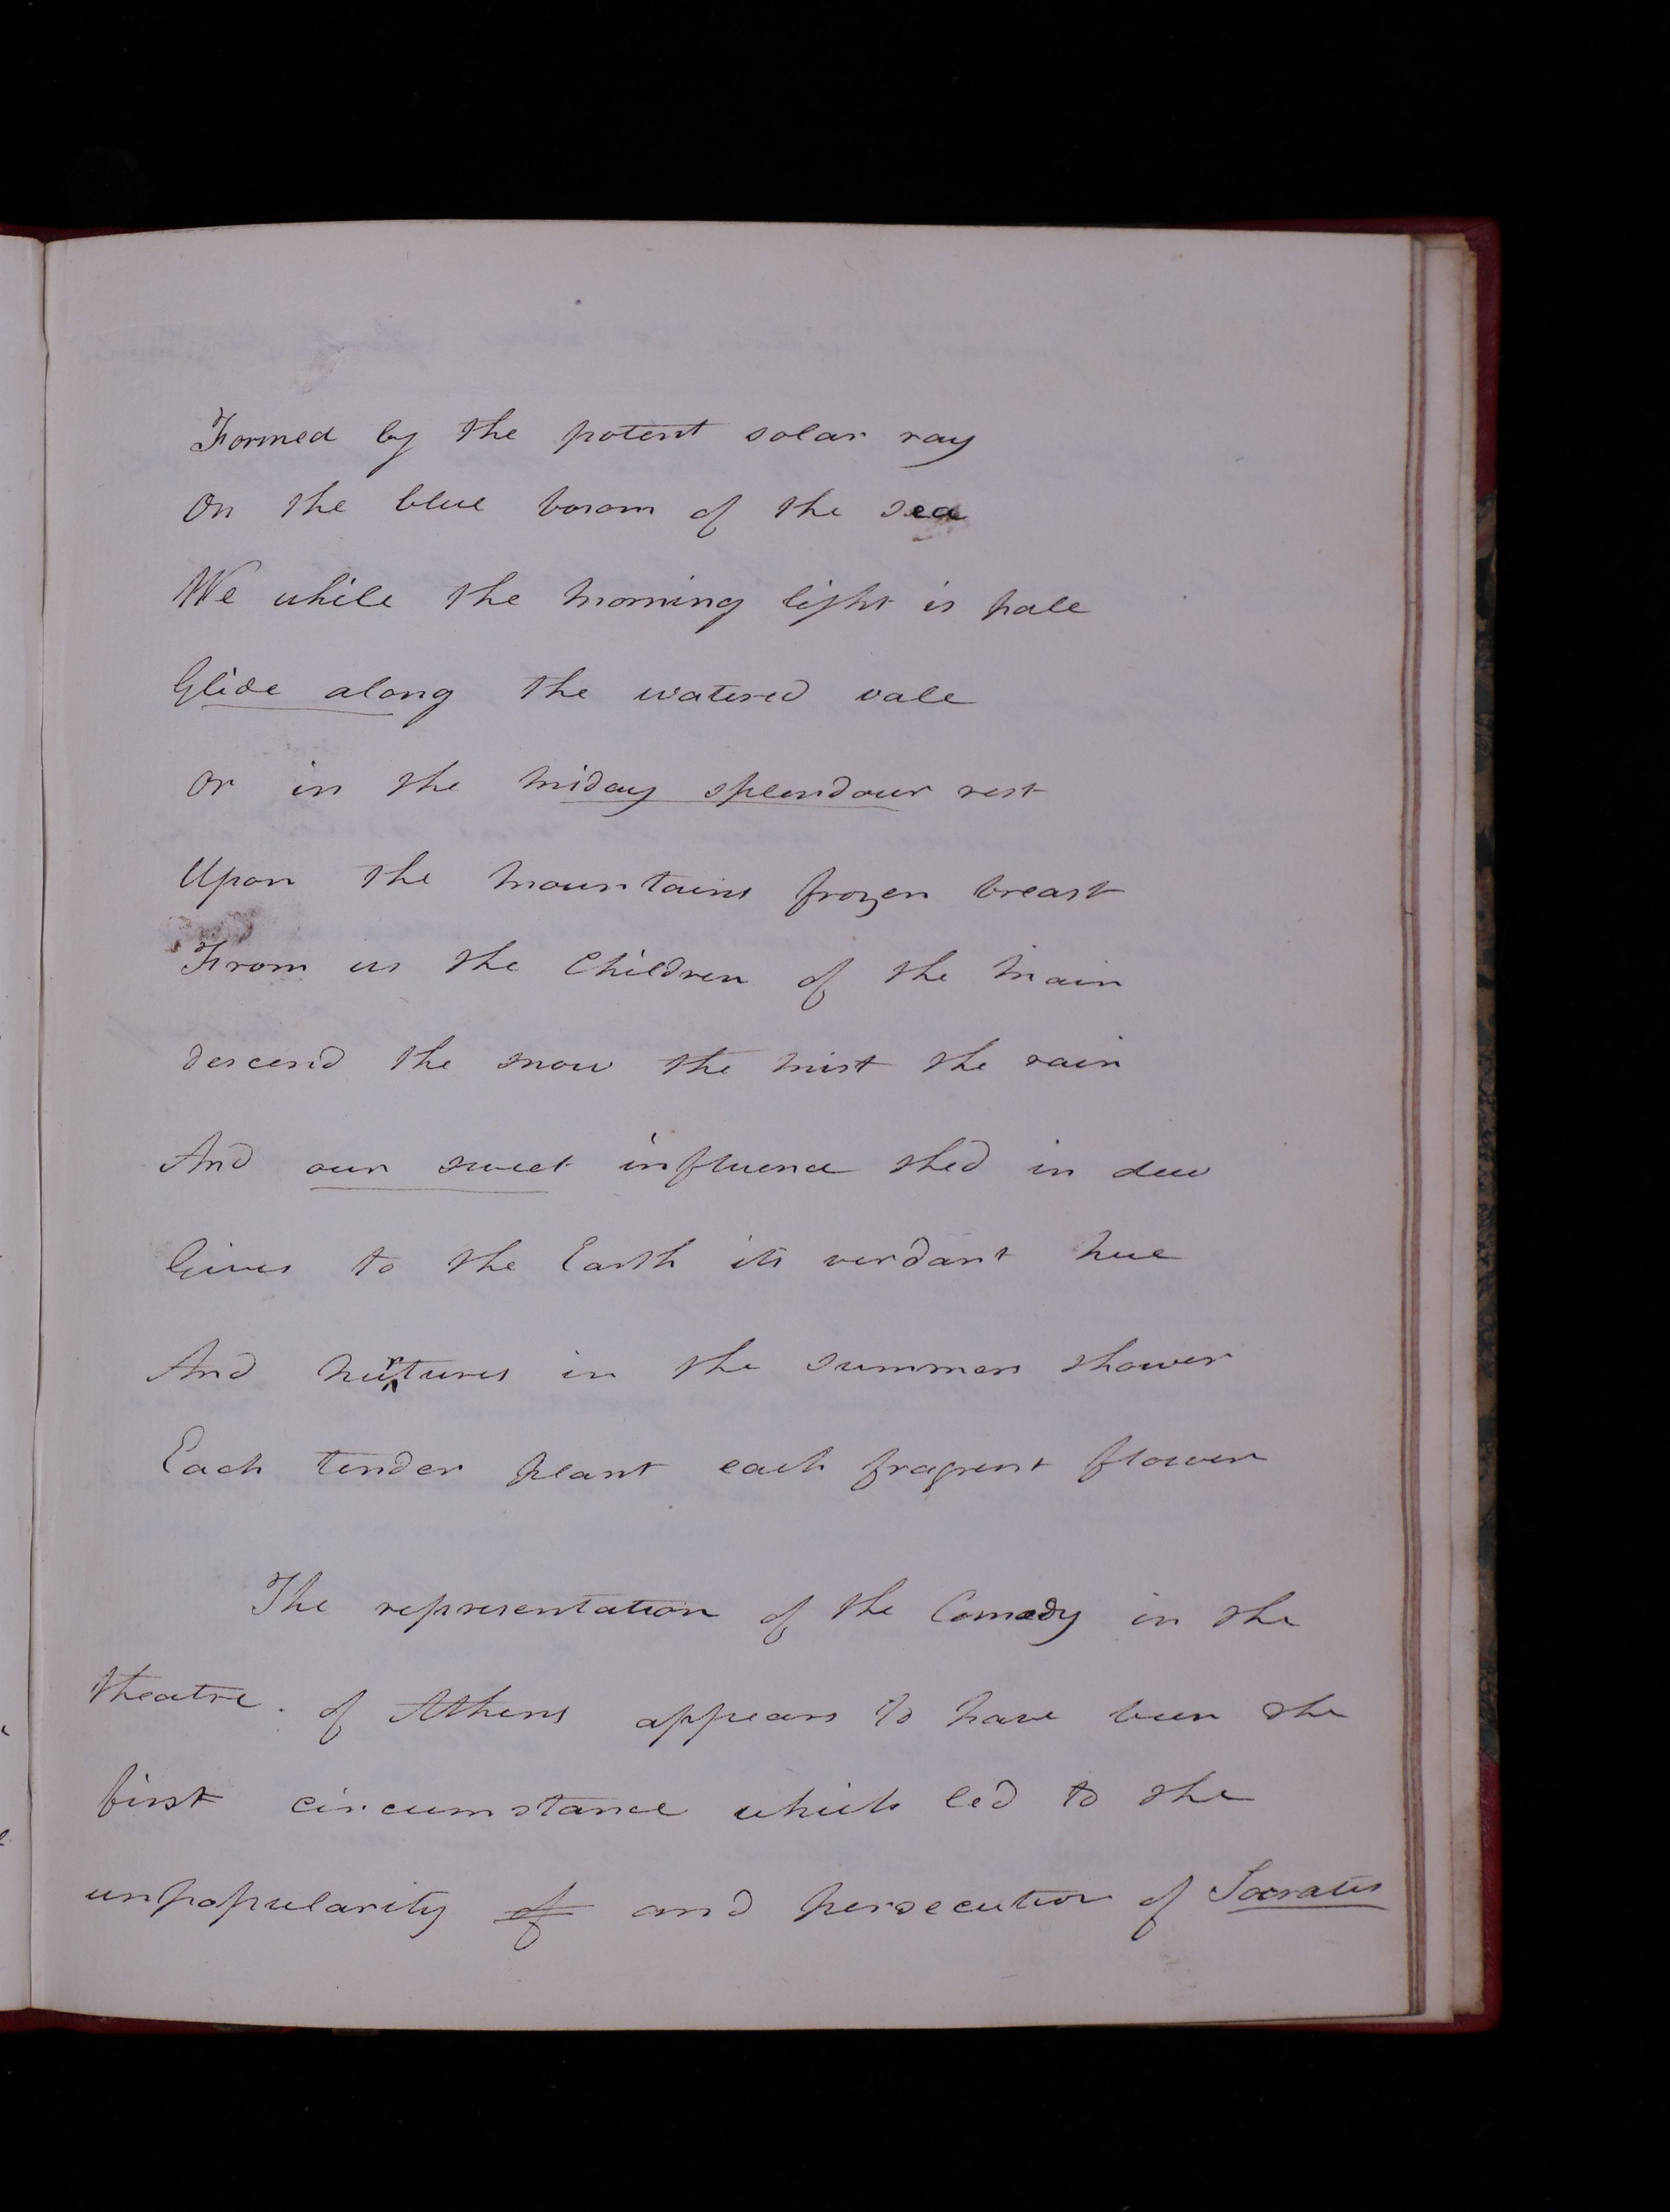 Formed by the potent solar ray
On the blue bosom of the sea
We while the morning light is pale
Glide along the watered vale
Or in the miday splendour rest
Upon the mountains frozen breast
From us the Children of the Main
descend the snow the mist the rain
And our sweet influence shed in dew
Gives to the Earth its verdant hue
And nurtures in the summers shower
Each tender plant each fragrent flower
The representation of the Comedy in the
theatre . of Athens appears to have been the
first circumstance which led to the
unpopularity of and persecution of Socrates